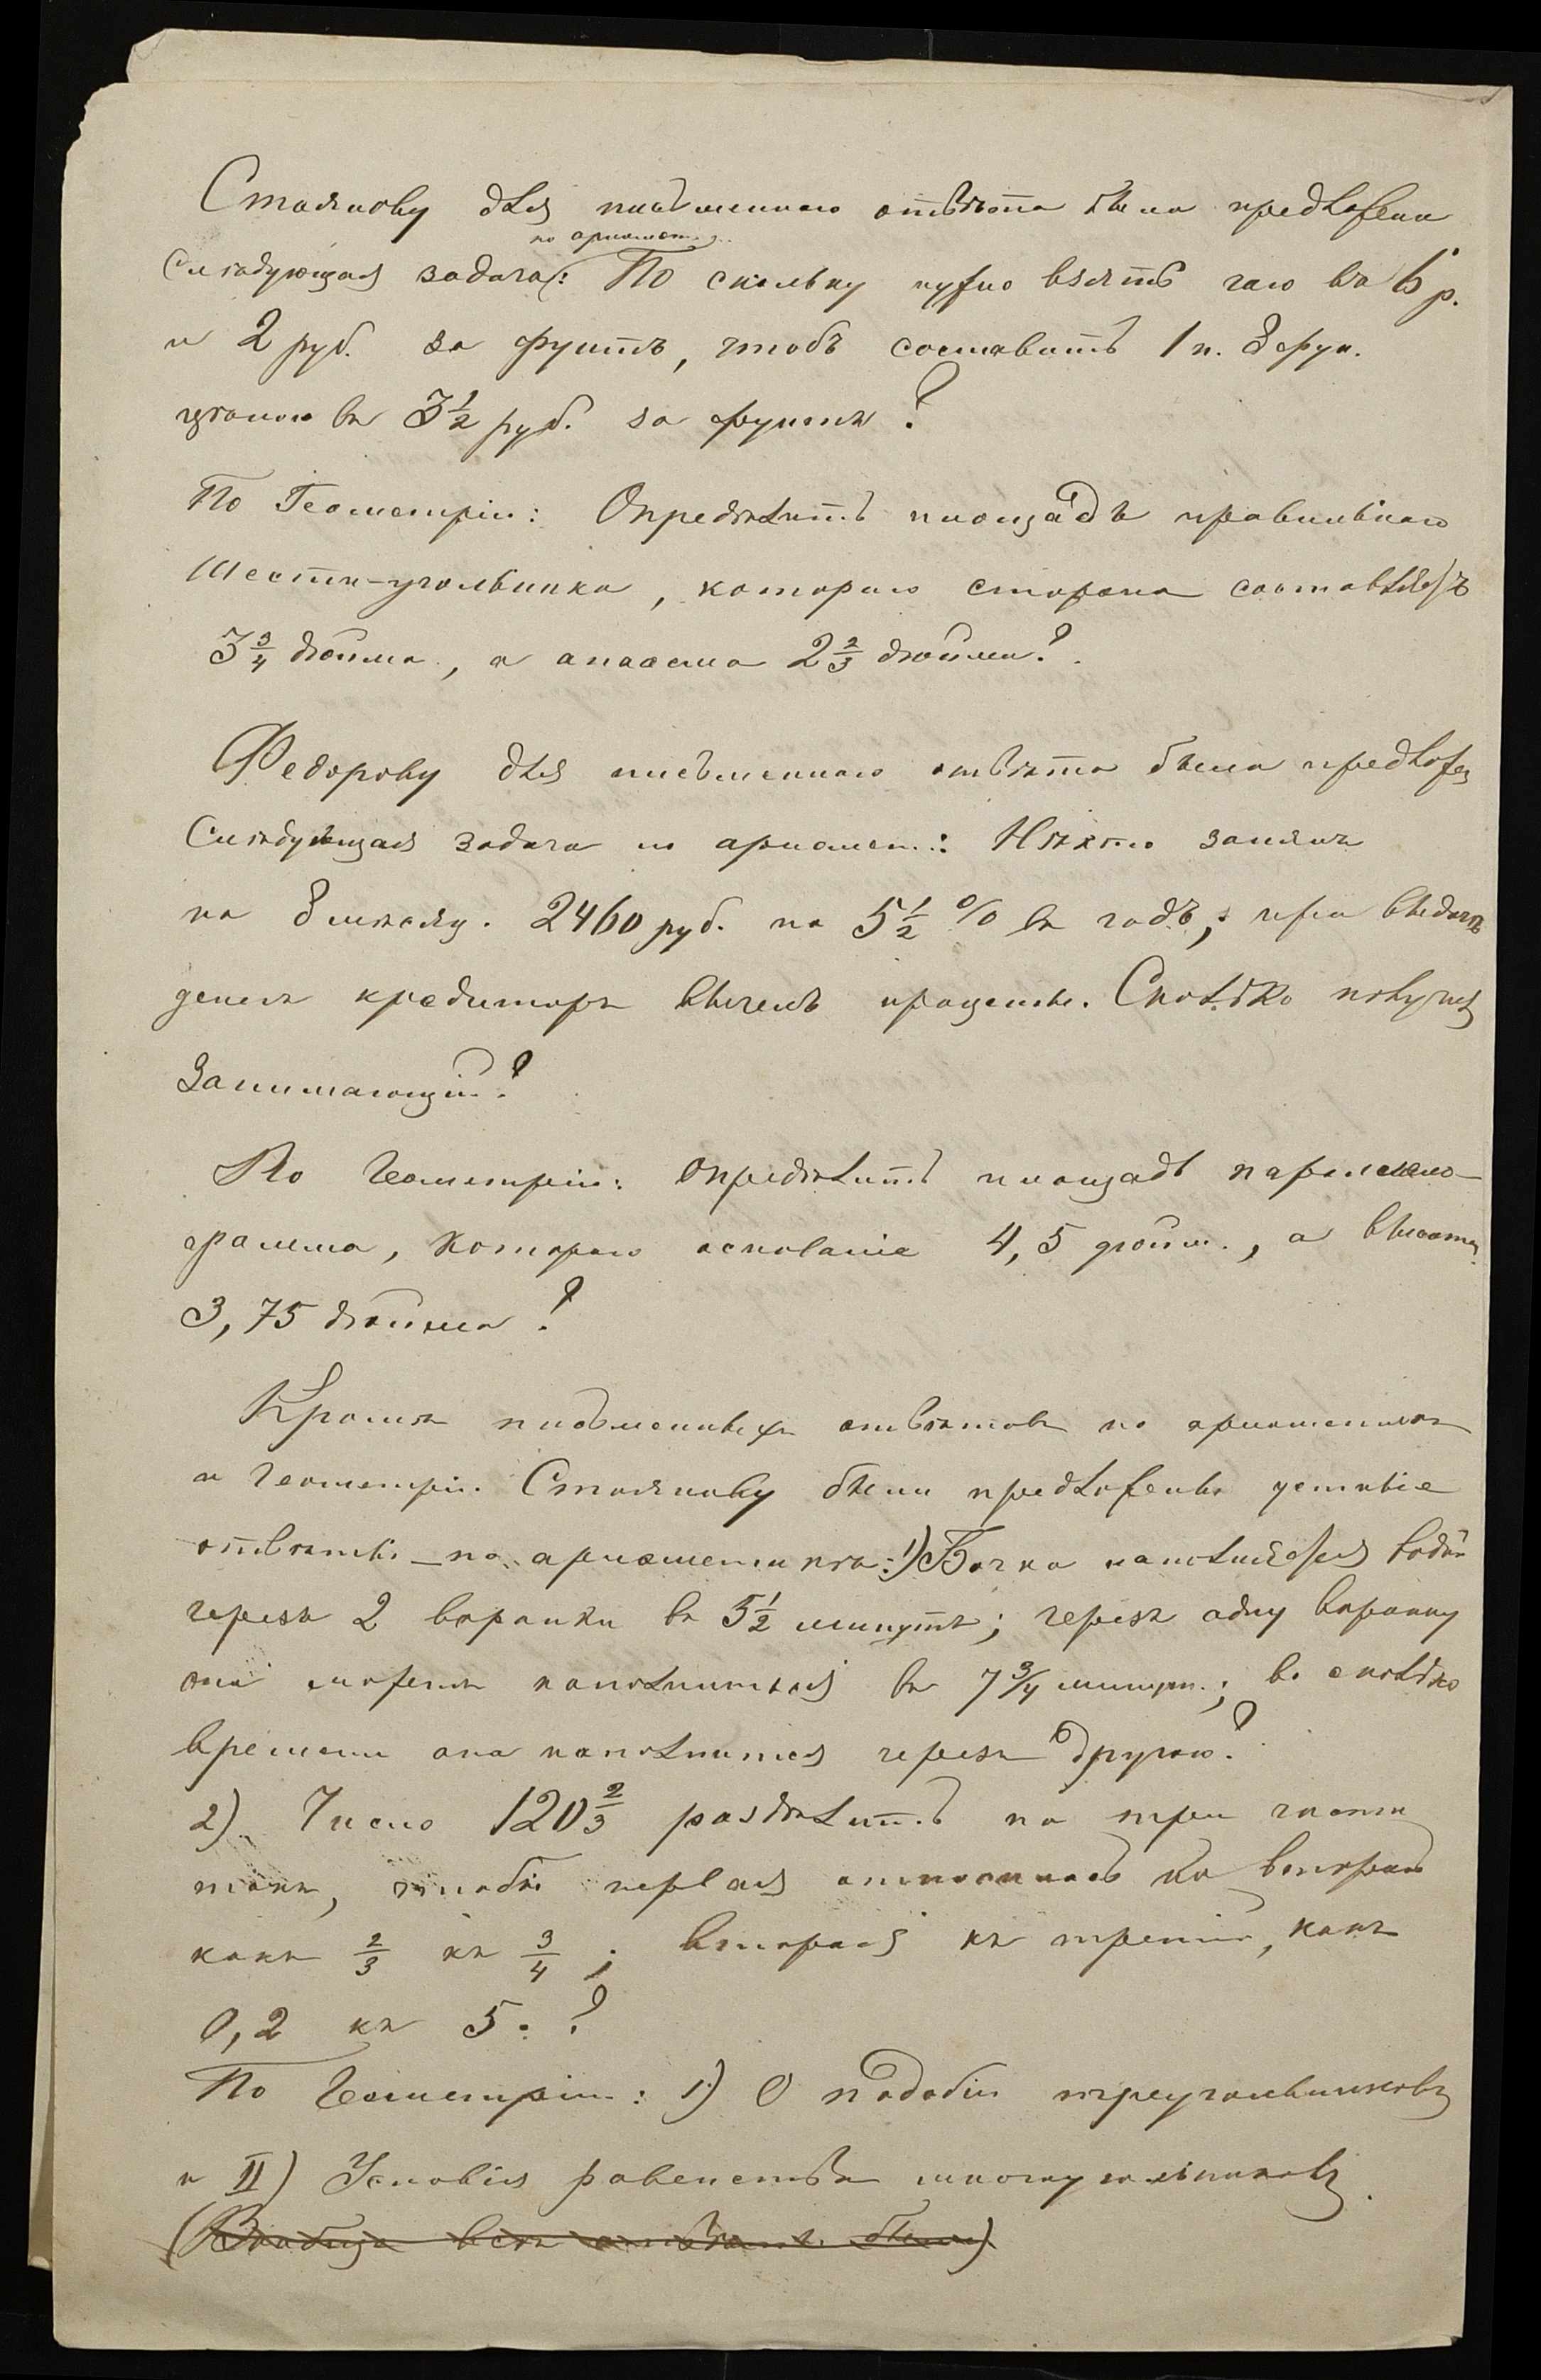 Стоянову для письменнаго отвѣта была предложена
по ариѳмет.
слѣдующая задача: По скольку нужно взять чаю въ 6 р.
и 2 руб. за фунтъ, чтобъ составить 1 п. 8 фун.
цѣною въ 3 1/2 руб. за фунтъ?
По Геометріи: Опредѣлить площадь правильнаго
шести-угольника, котораго сторона составляетъ
3 3/4 дюйма, а апоѳема 2 2/3 дюйма?
Федорову для письменнаго отвѣта была предложена
слѣдующая задача по ариѳмет.: Нѣкто занялъ
на 8 мѣсяц. 2460 руб. по 5 1/2 % въ годъ; при выдачѣ
денегъ кредиторъ вычелъ проценты. Сколько получилъ
занимающій?
По Геометріи: Опредѣлить площадь паралелло-
грамма, котораго основаніе 4,5 дюйм., а высота
3,75 дюйма?
Кромѣ письменныхъ отвѣтовъ по ариѳметикѣ
и Геометріи Стоянову были предложены устные
отвѣты – по ариѳметикѣ: 1) Бочка наполняется водой
черезъ 2 воронки въ 5 1/2 минутъ; черезъ одну воронку
она можетъ наполниться въ 7 3/4 минут.; во сколько
времени она наполнится черезъ другую?
2) Число 120 2/3 раздѣлить на три части
такъ, чтобы первая относилась ко второй
какъ 2/3 къ 3/4; вторая къ третій, какъ
0,2 къ 5.?
По Геометріи: 1) О подобіи треугольниковъ
и II) Условія равенства многоугольниковъ.
(Вообще всѣ отвѣты были)